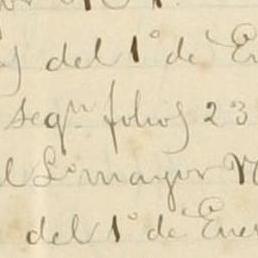 del 1º de En
segⁿ folios 23
l Lº mayor N
del 1º de Ener